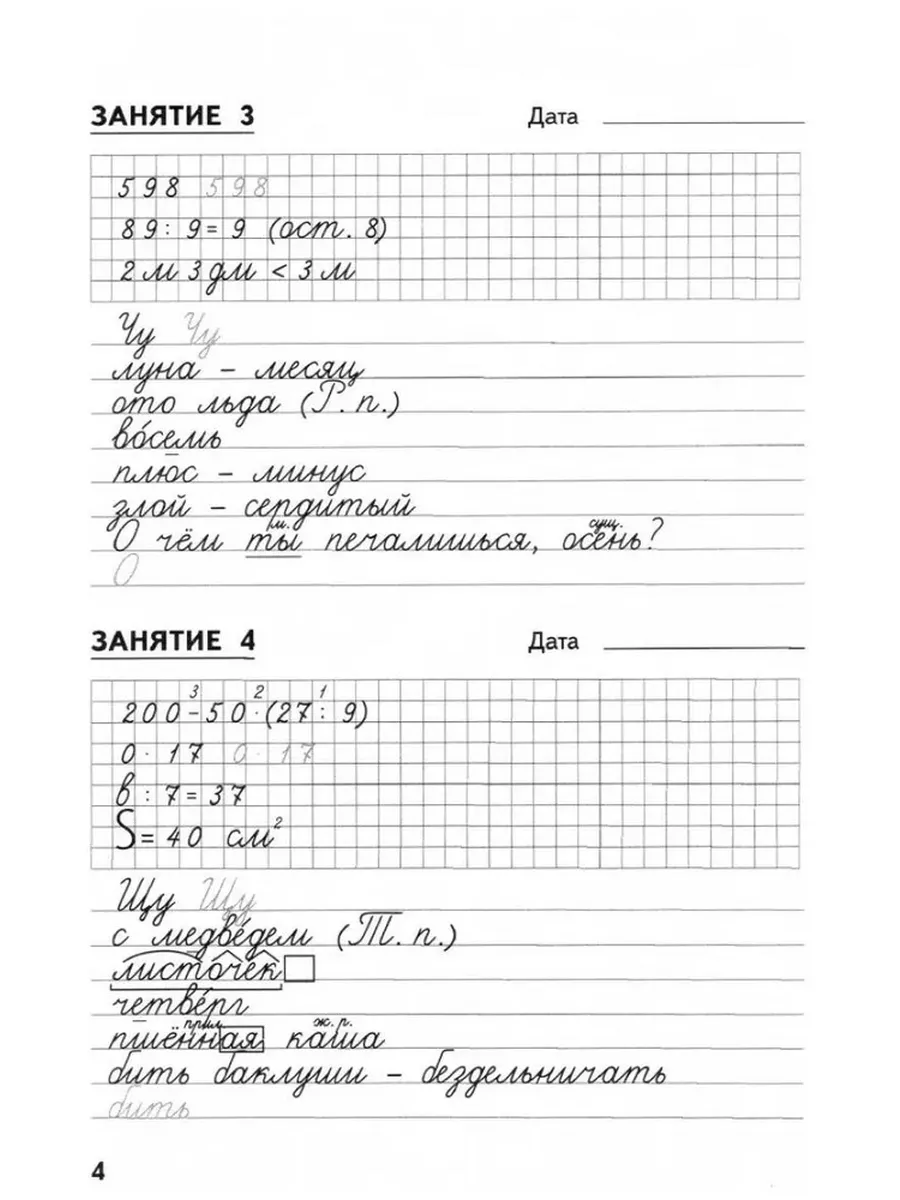 ЗАНЯТИЕ 3 Дата
598 598
89 : 9 = 9 (ост. 8)
2 м 3 дм < 3 м
Чу Чу
луна – месяц
ото льда (Р. п.)
во́семь
плюс – минус
злой – сердитый
м. сущ.
О чём ты печалишься, осень?
О
ЗАНЯТИЕ 4 Дата
3 2 1
200 - 50 · (27 : 9)
0 · 17 0 · 17
в : 7 = 37
S = 40 см²
Щу Щу
с медве́дем (Т. п.)
листочек
четве́рг
прил. ж. р.
пшённая каша
бить баклуши – бездельничать
бить
4